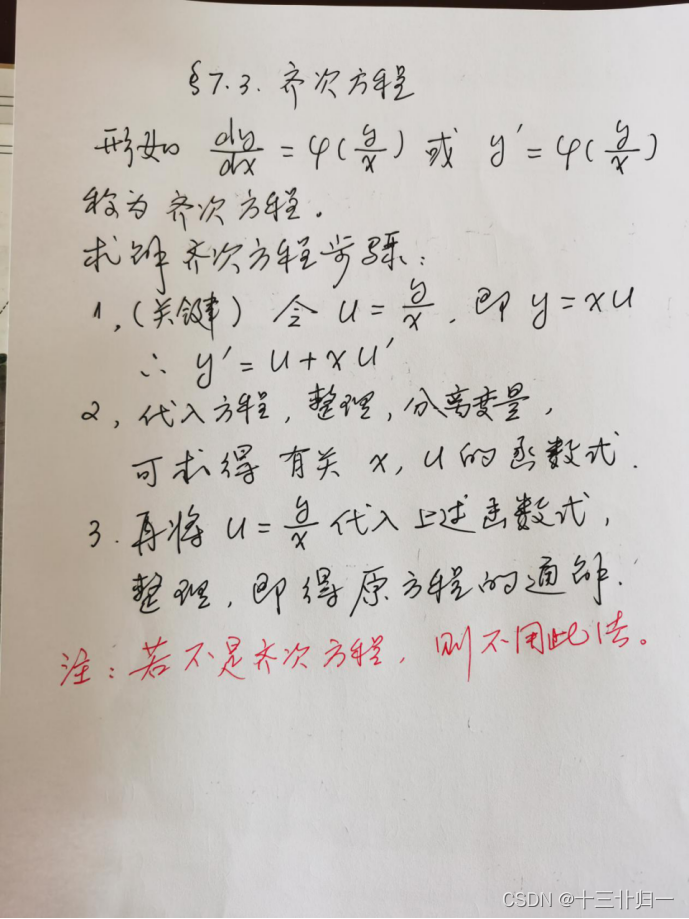 §7.3. 齐次方程
形如 dy/dx = φ(y/x) 或 y′ = φ(y/x)
称为齐次方程.
求解齐次方程步骤:
1,(关键) 令 u = y/x, 即 y = xu
∴ y′ = u + xu′
2, 代入方程, 整理, 分离变量,
可求得有关 x, u 的函数式.
3. 再将 u = y/x 代入上述函数式,
整理, 即得原方程的通解.
注: 若不是齐次方程, 则不用此法。
CSDN @十三卝归一